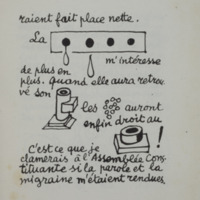 raient fait place nette.
La
m'intéresse
de plus en
plus. quand elle aura retrou
vé son
les
auront
enfin droit au
!
C'est ce que je
clamerais à l'Assemblée Cons
tituante si la parole et la
migraine m'étaient rendues